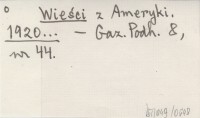 ° Wieści z Ameryki.
1920... — Gaz. Podh. 8,
nr 44.